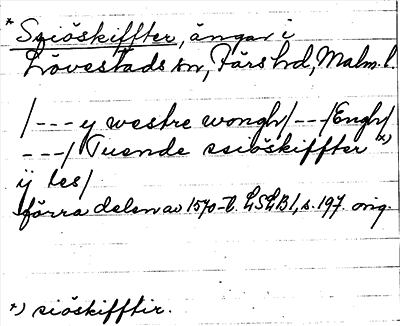 * Sziöskiffter, ängar i
Lövestads sn, Färs hd, Malm. l.
/--- y westre wongh/---/Engh/
---/ Tuende ssiöskiffter *)
ij les/
förra delen av 1570-t. LSLB1, s. 197. orig.
*) siöskifftir.